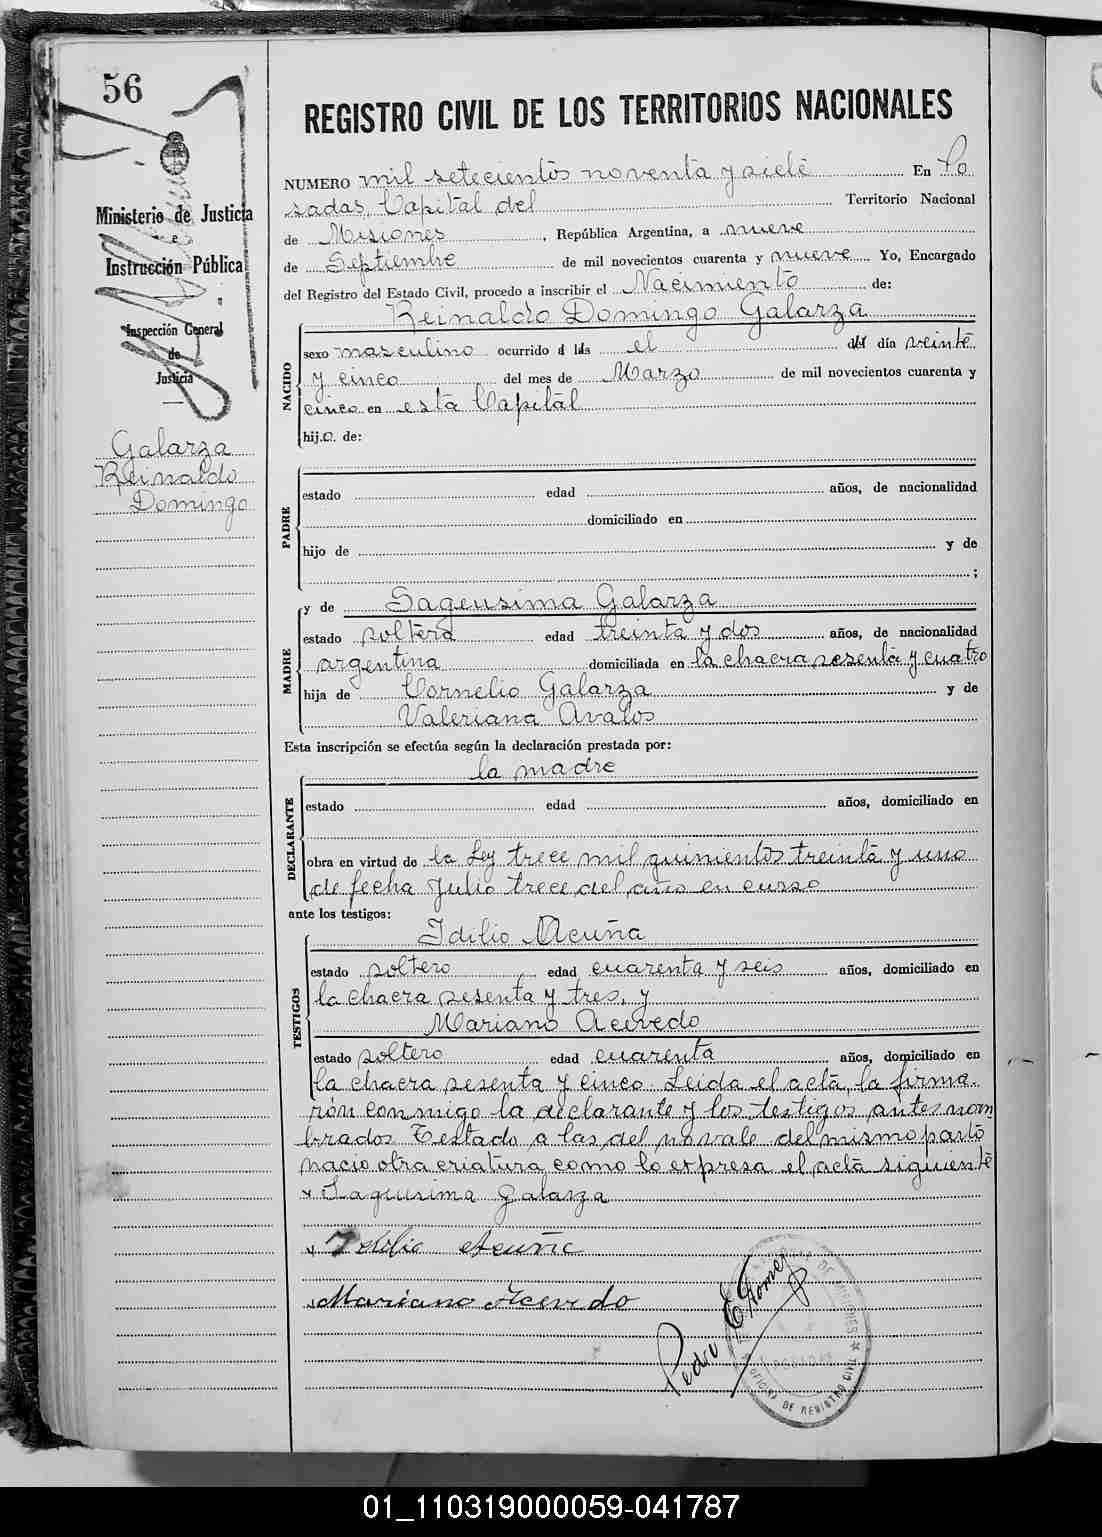 56
Ministerio de Justicia
e
Instrucción Pública
Inspección General
de
Justicia
Galarza
Reinaldo
Domingo
REGISTRO CIVIL DE LOS TERRITORIOS NACIONALES
NUMERO mil setecientos noventa y siete En Po
sadas, Capital del Territorio Nacional
de Misiones, República Argentina, a nueve
de Septiembre de mil novecientos cuarenta y nueve Yo, Encargado
del Registro del Estado Civil, procedo a inscribir el Nacimiento de:
Reinaldo Domingo Galarza
NACIDO
sexo masculino ocurrido a las el del día veinte
y cinco del mes de Marzo de mil novecientos cuarenta y
cinco en esta Capital
hijo de:
PADRE
estado edad años, de nacionalidad
domiciliado en
hijo de y de
;
MADRE
y de Sageusima Galarza
estado soltera edad treinta y dos años, de nacionalidad
argentina domiciliada en la chacra sesenta y cuatro
hija de Cornelio Galarza y de
Valeriana Avalos
Esta inscripción se efectúa según la declaración prestada por:
la madre
DECLARANTE
estado edad años, domiciliado en
obra en virtud de la Ley trece mil quinientos treinta y uno
de fecha Julio trece del año en curso
ante los testigos:
TESTIGOS
Idilio Acuña
estado soltero edad cuarenta y seis años, domiciliado en
la chacra sesenta y tres, y
Mariano Acevedo
estado soltero edad cuarenta años, domiciliado en
la chacra sesenta y cinco. Leida el acta, la firma-
rón conmigo la declarante y los testigos antes nom
brados Testado a las del no vale del mismo parto
nacio otra criatura como lo expresa el acta siguiente
Sageusima Galarza
Idilio Acuña
Mariano Acevedo
Pedro
OFICINA DE REGISTRO CIVIL
DE MISIONES
POSADAS
01_110319000059-041787